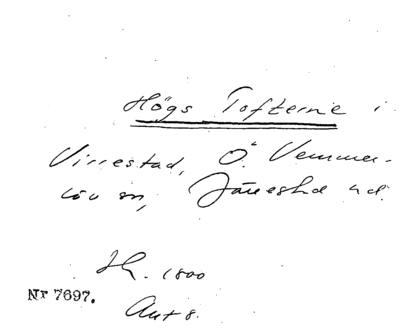 Högs Tofterne i
Virrestad, Ö. Vemmer-
löv sn, Järrestad hd.
Sk. 1800
Nr 7697.
Ant 8.